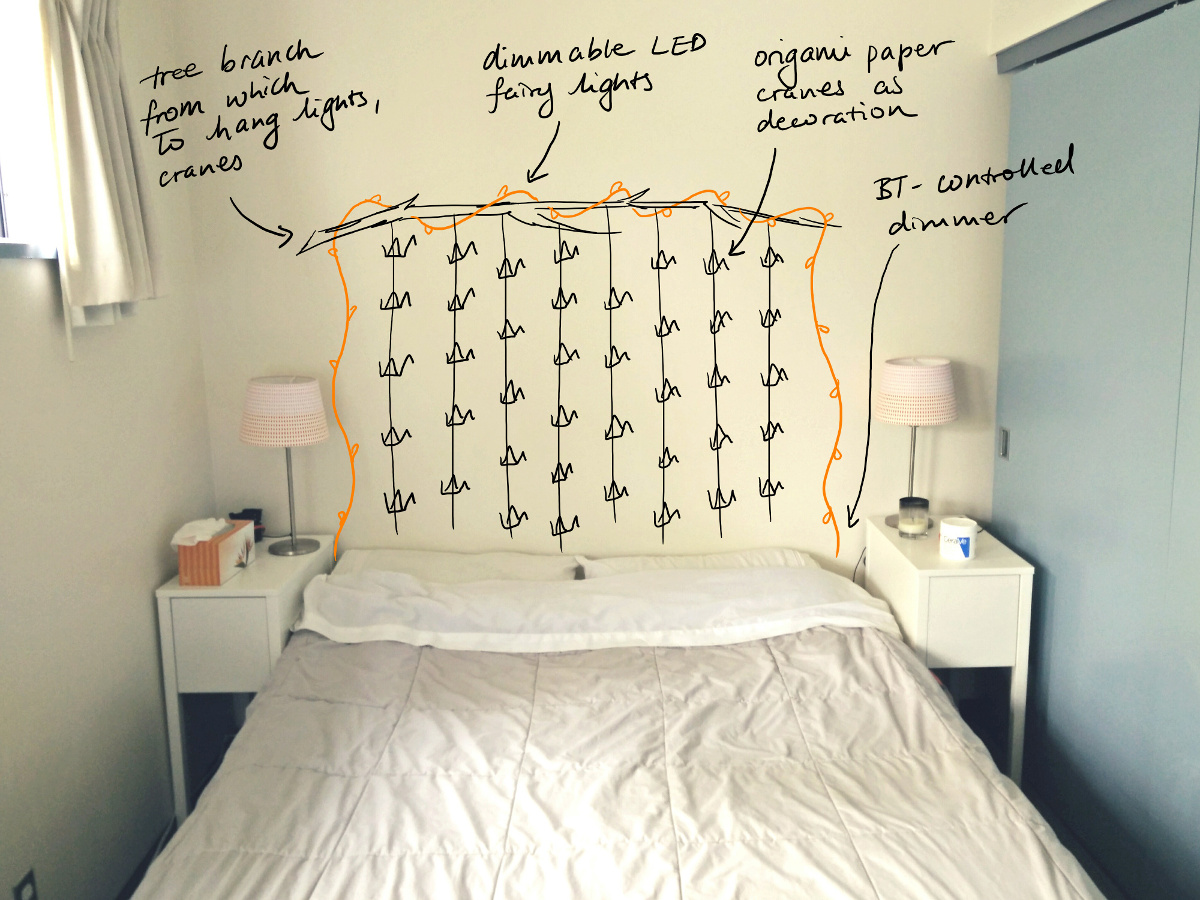 tree branch
from which
to hang lights,
cranes
dimmable LED
fairy lights
origami paper
cranes as
decoration
BT-controlled
dimmer